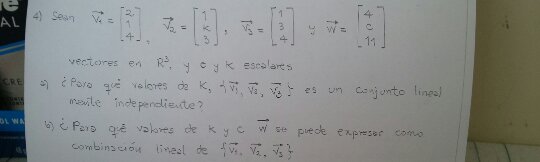 4) Sean v₁ = [2 1 4], v₂ = [1 K 3], v₃ = [1 3 4] y w = [4 c 11]
vectores en R³, y c y k escalares
a) ¿Para qué valores de K, {v₁, v₂, v₃} es un conjunto lineal
mente independiente?
b) ¿Para qué valores de k y c w se puede expresar como
combinación lineal de {v₁, v₂, v₃}
AL
CRE